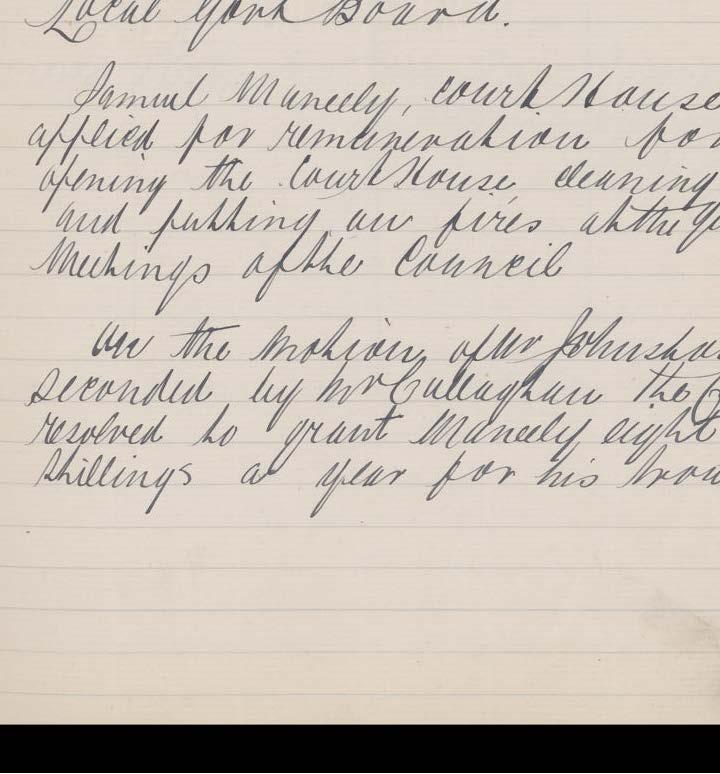 Local Govt Board.
Samuel Maneely, Court House
applied for remuneration for
opening the Court House cleaning
and putting on fires at the
Meetings of the Council
On the motion of Mr Johnston
seconded by Mr Callaghan the
resolved to grant Maneely eight
shillings a year for his